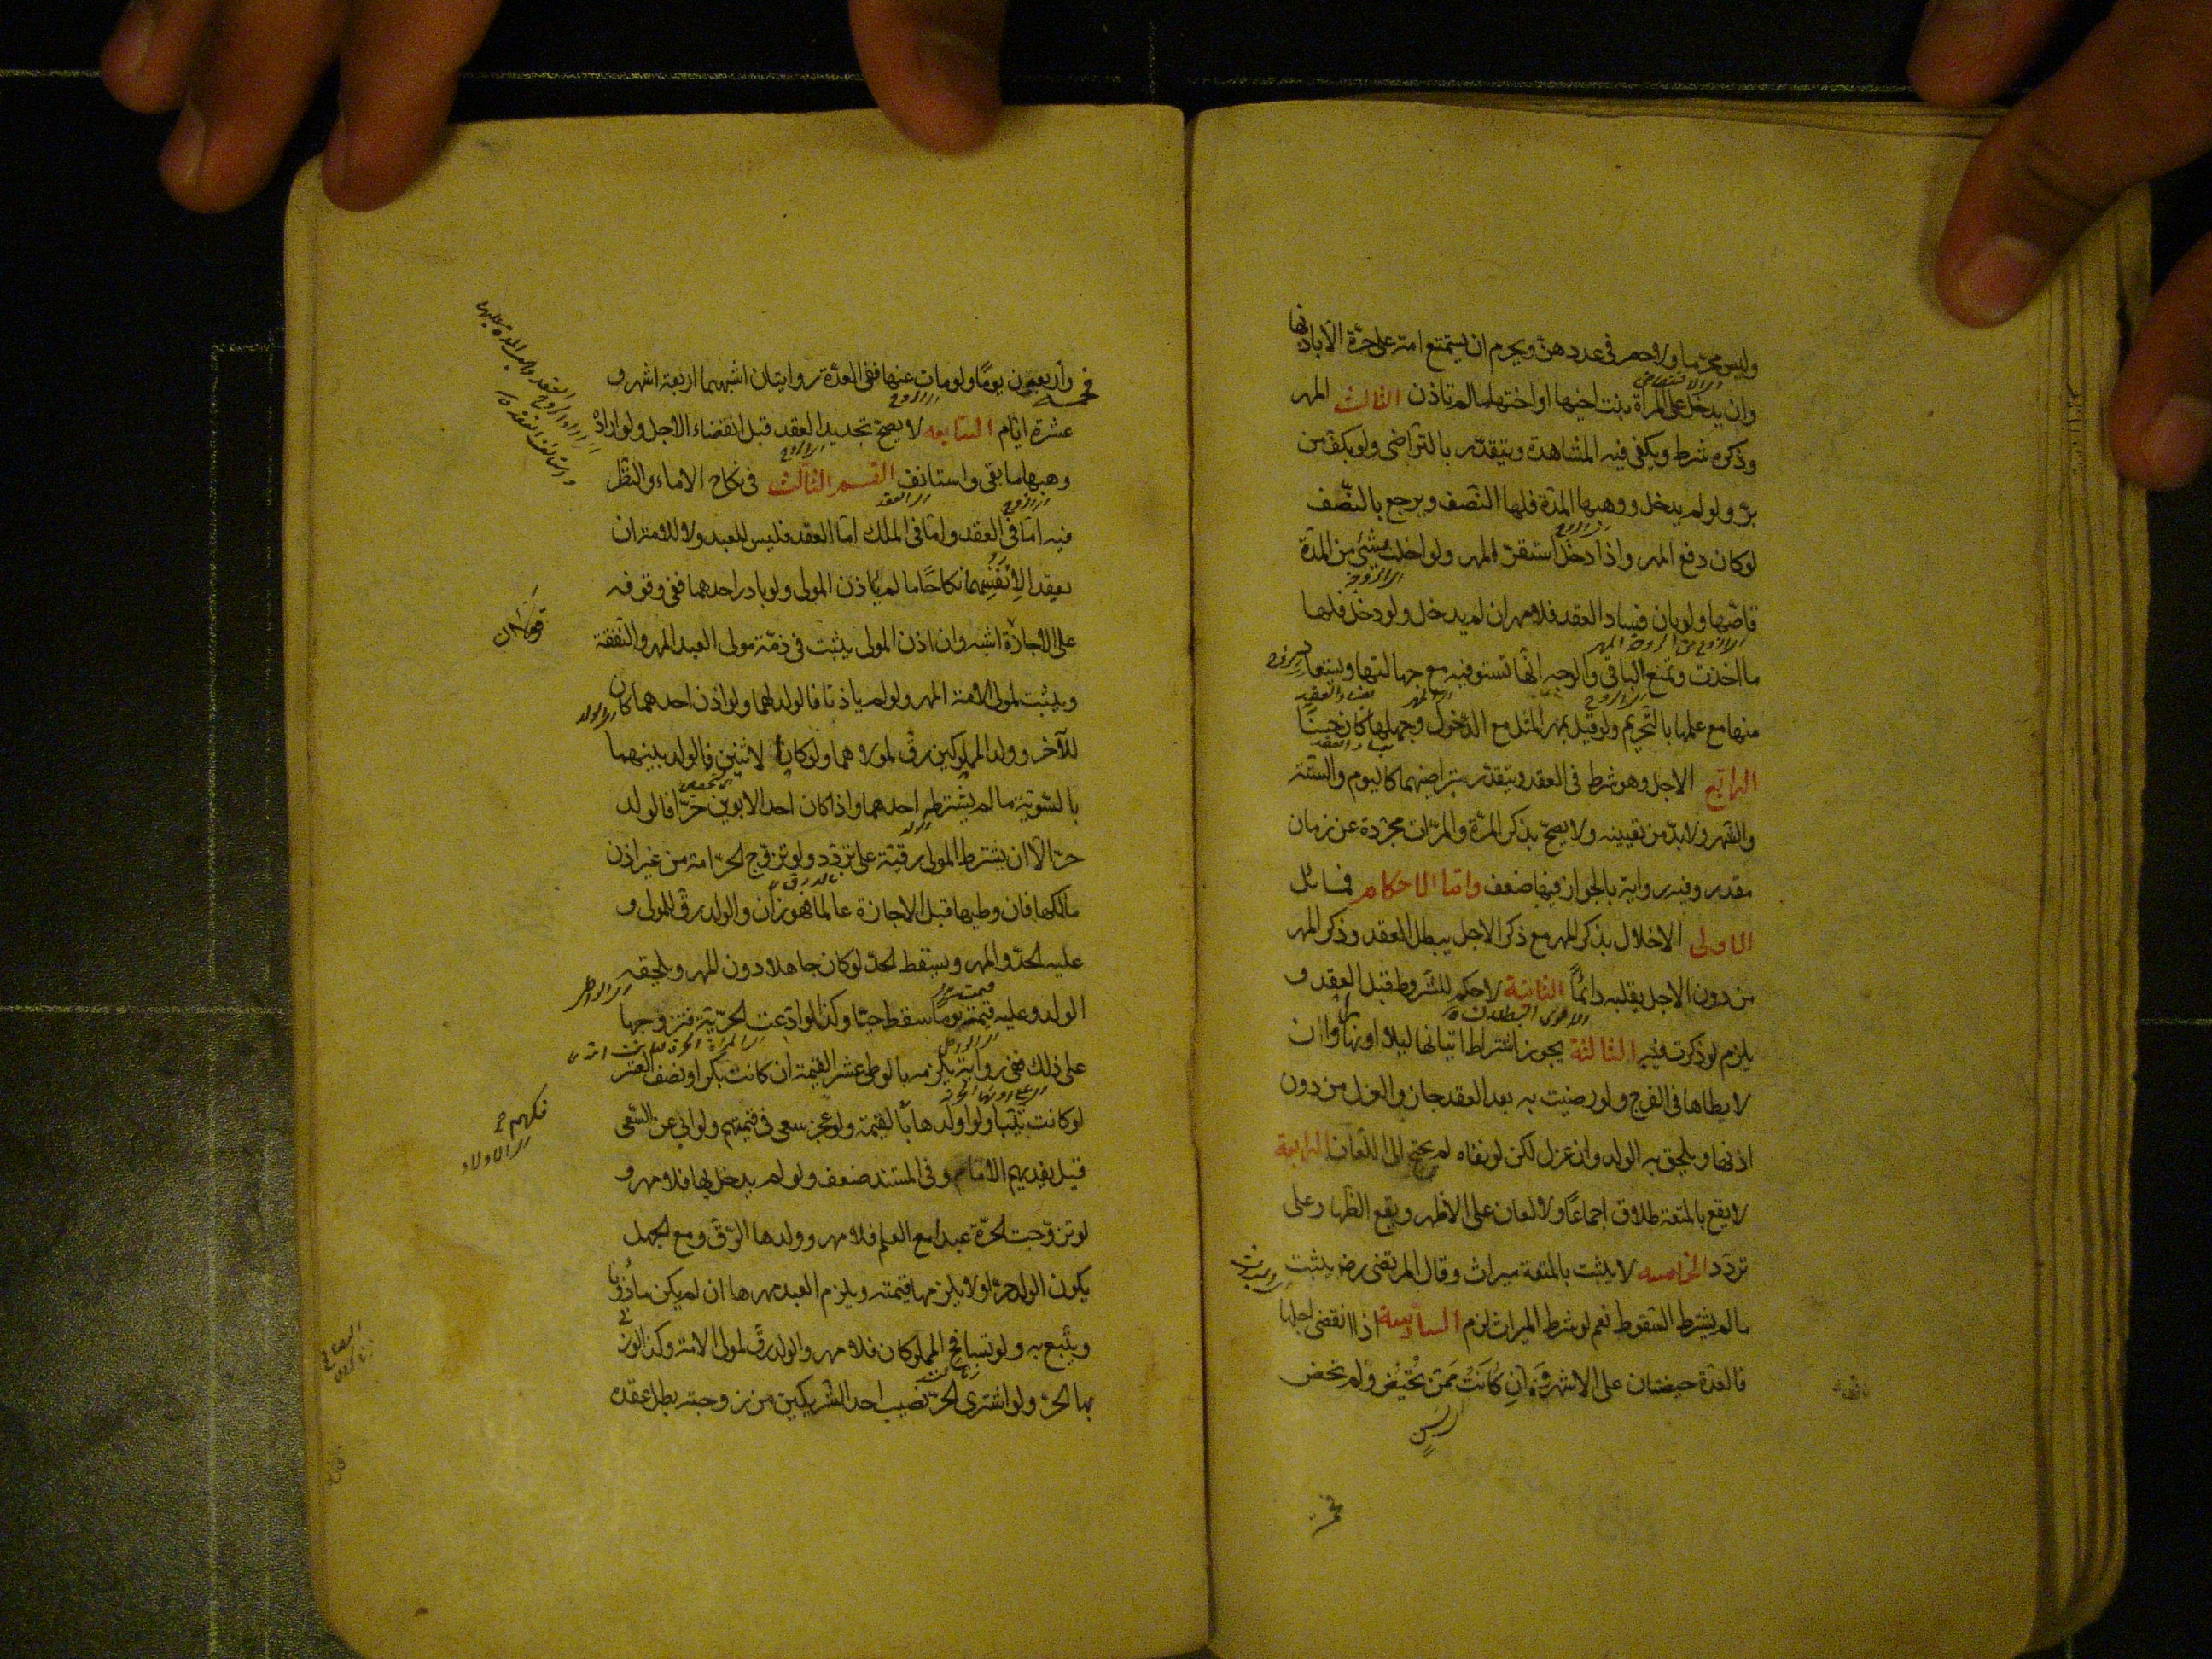 وليس محرما ولا حصر في عددهن ويحرم ان يستمتع امة على حرة الا باذنها
وان يدخل على المراة بنت اخيها او اختها ما لم تاذن الثالث المهر
وذكره شرط ويكفي فيه المشاهدة ويتقدر بالتراضي ولو بكف من
بر ولو لم يدخل ووهبها المدة فلها النصف ويرجع بالنصف
لو كان دفع المهر واذا دخل استقر المهر ولو اخلت بشئ من المدة
قاصها ولو بان فساد العقد فلا مهر ان لم يدخل ولو دخل فلها
ما اخذت وتمنع الباقي والوجه انها تستوفيه مع جهالتها ويستعاد
منها مع علمها بالتحريم ولو قيل بمهر المثل مع الدخول وجهلها كان حسنا
الرابع الاجل وهو شرط في العقد ويتقدر بتراضيهما كاليوم والسنة
والشهر ولا بد من تعيينه ولا يصح بذكر المرة والمرات مجردة عن زمان
مقدر وفيه رواية بالجواز فيها ضعف واما الاحكام فمسائل
الاولى الاخلال بذكر المهر مع ذكر الاجل يبطل العقد وذكر المهر
من دون الاجل يقلبه دائما الثانية لا حكم للشروط قبل العقد و
يلزم لو ذكرت فيه الثالثة يجوز اشتراط اتيانها ليلا او نهارا وان
لا يطاها في الفرج ولو رضيت به بعد العقد جاز والعزل من دون
اذنها ويلحق به الولد وان عزل لكن لو نفاه لم يحتج الى اللعان الرابعة
لا يقع بالمتعة طلاق اجماعا ولا لعان على الاظهر ويقع الظهار على
تردد الخامسة لا يثبت بالمتعة ميراث وقال المرتضى رضه يثبت
ما لم يشترط السقوط نعم لو شرط الميراث لزم السادسة اذا انقضى اجلها
فالعدة حيضتان على الاشهر وان كانت ممن تحيض ولم تحض
خمسة واربعون يوما ولو مات عنها ففي العدة روايتان اشبههما اربعة اشهر و
عشرة ايام السابعة لا يصح تجديد العقد قبل انقضاء الاجل ولو اراد
وهبها ما بقي واستانف القسم الثالث في نكاح الاماء والنظر
فيه اما في العقد واما في الملك اما العقد فليس للعبد ولا للامة ان
يعقدا لانفسهما نكاحا ما لم ياذن المولى ولو بادر احدهما ففي وقوفه
على الاجازة اشبه وان اذن المولى يثبت في ذمة مولى العبد المهر والنفقة
ويثبت لمولى الامة المهر ولو لم ياذنا فالولد لهما ولو اذن احدهما كان
للآخر وولد المملوكين رق لمولاهما ولو كانا لاثنين فالولد بينهما
بالسوية ما لم يشترط احدهما واذا كان احد الابوين حرا فالولد
حر الا ان يشترط المولى رقيته على تردد ولو تزوج الحر امة من غير اذن
مالكها فان وطيها قبل الاجازة عالما فهو زان والولد رق للمولى و
عليه الحد والمهر ويسقط الحد لو كان جاهلا دون المهر ويلحقه
الولد وعليه قيمته يوم سقط حيا وكذا لو ادعت الحرية فتزوجها
على ذلك ففي رواية يلزمه بالوطي عشر القيمة ان كانت بكرا ونصف العشر
لو كانت ثيبا ولو اولدها بالقيمة ولو عجز سعى في قيمتهم ولو ابى عن السعي
قيل يفديهم الامام وفي المستند ضعف ولو لم يدخل بها فلا مهر و
لو تزوجت الحرة عبدا مع العلم فلا مهر وولدها الرق ومع الجهل
يكون الولد حرا ولا يلزمها قيمته ويلزم العبد مهرها ان لم يكن ماذونا
ويتبع به ولو تسافح المملوكان فلا مهر والولد رق لمولى الامة وكذا لو زنى
بها الحر ولو اشترى الحر نصيب احد الشريكين من زوجته بطل عقده
فكهم